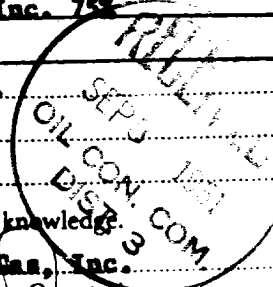 Inc. 75%
RECEIVED
SEP 1961
OIL CON. COM.
DIST. 3
knowledge.
Gas, Inc.